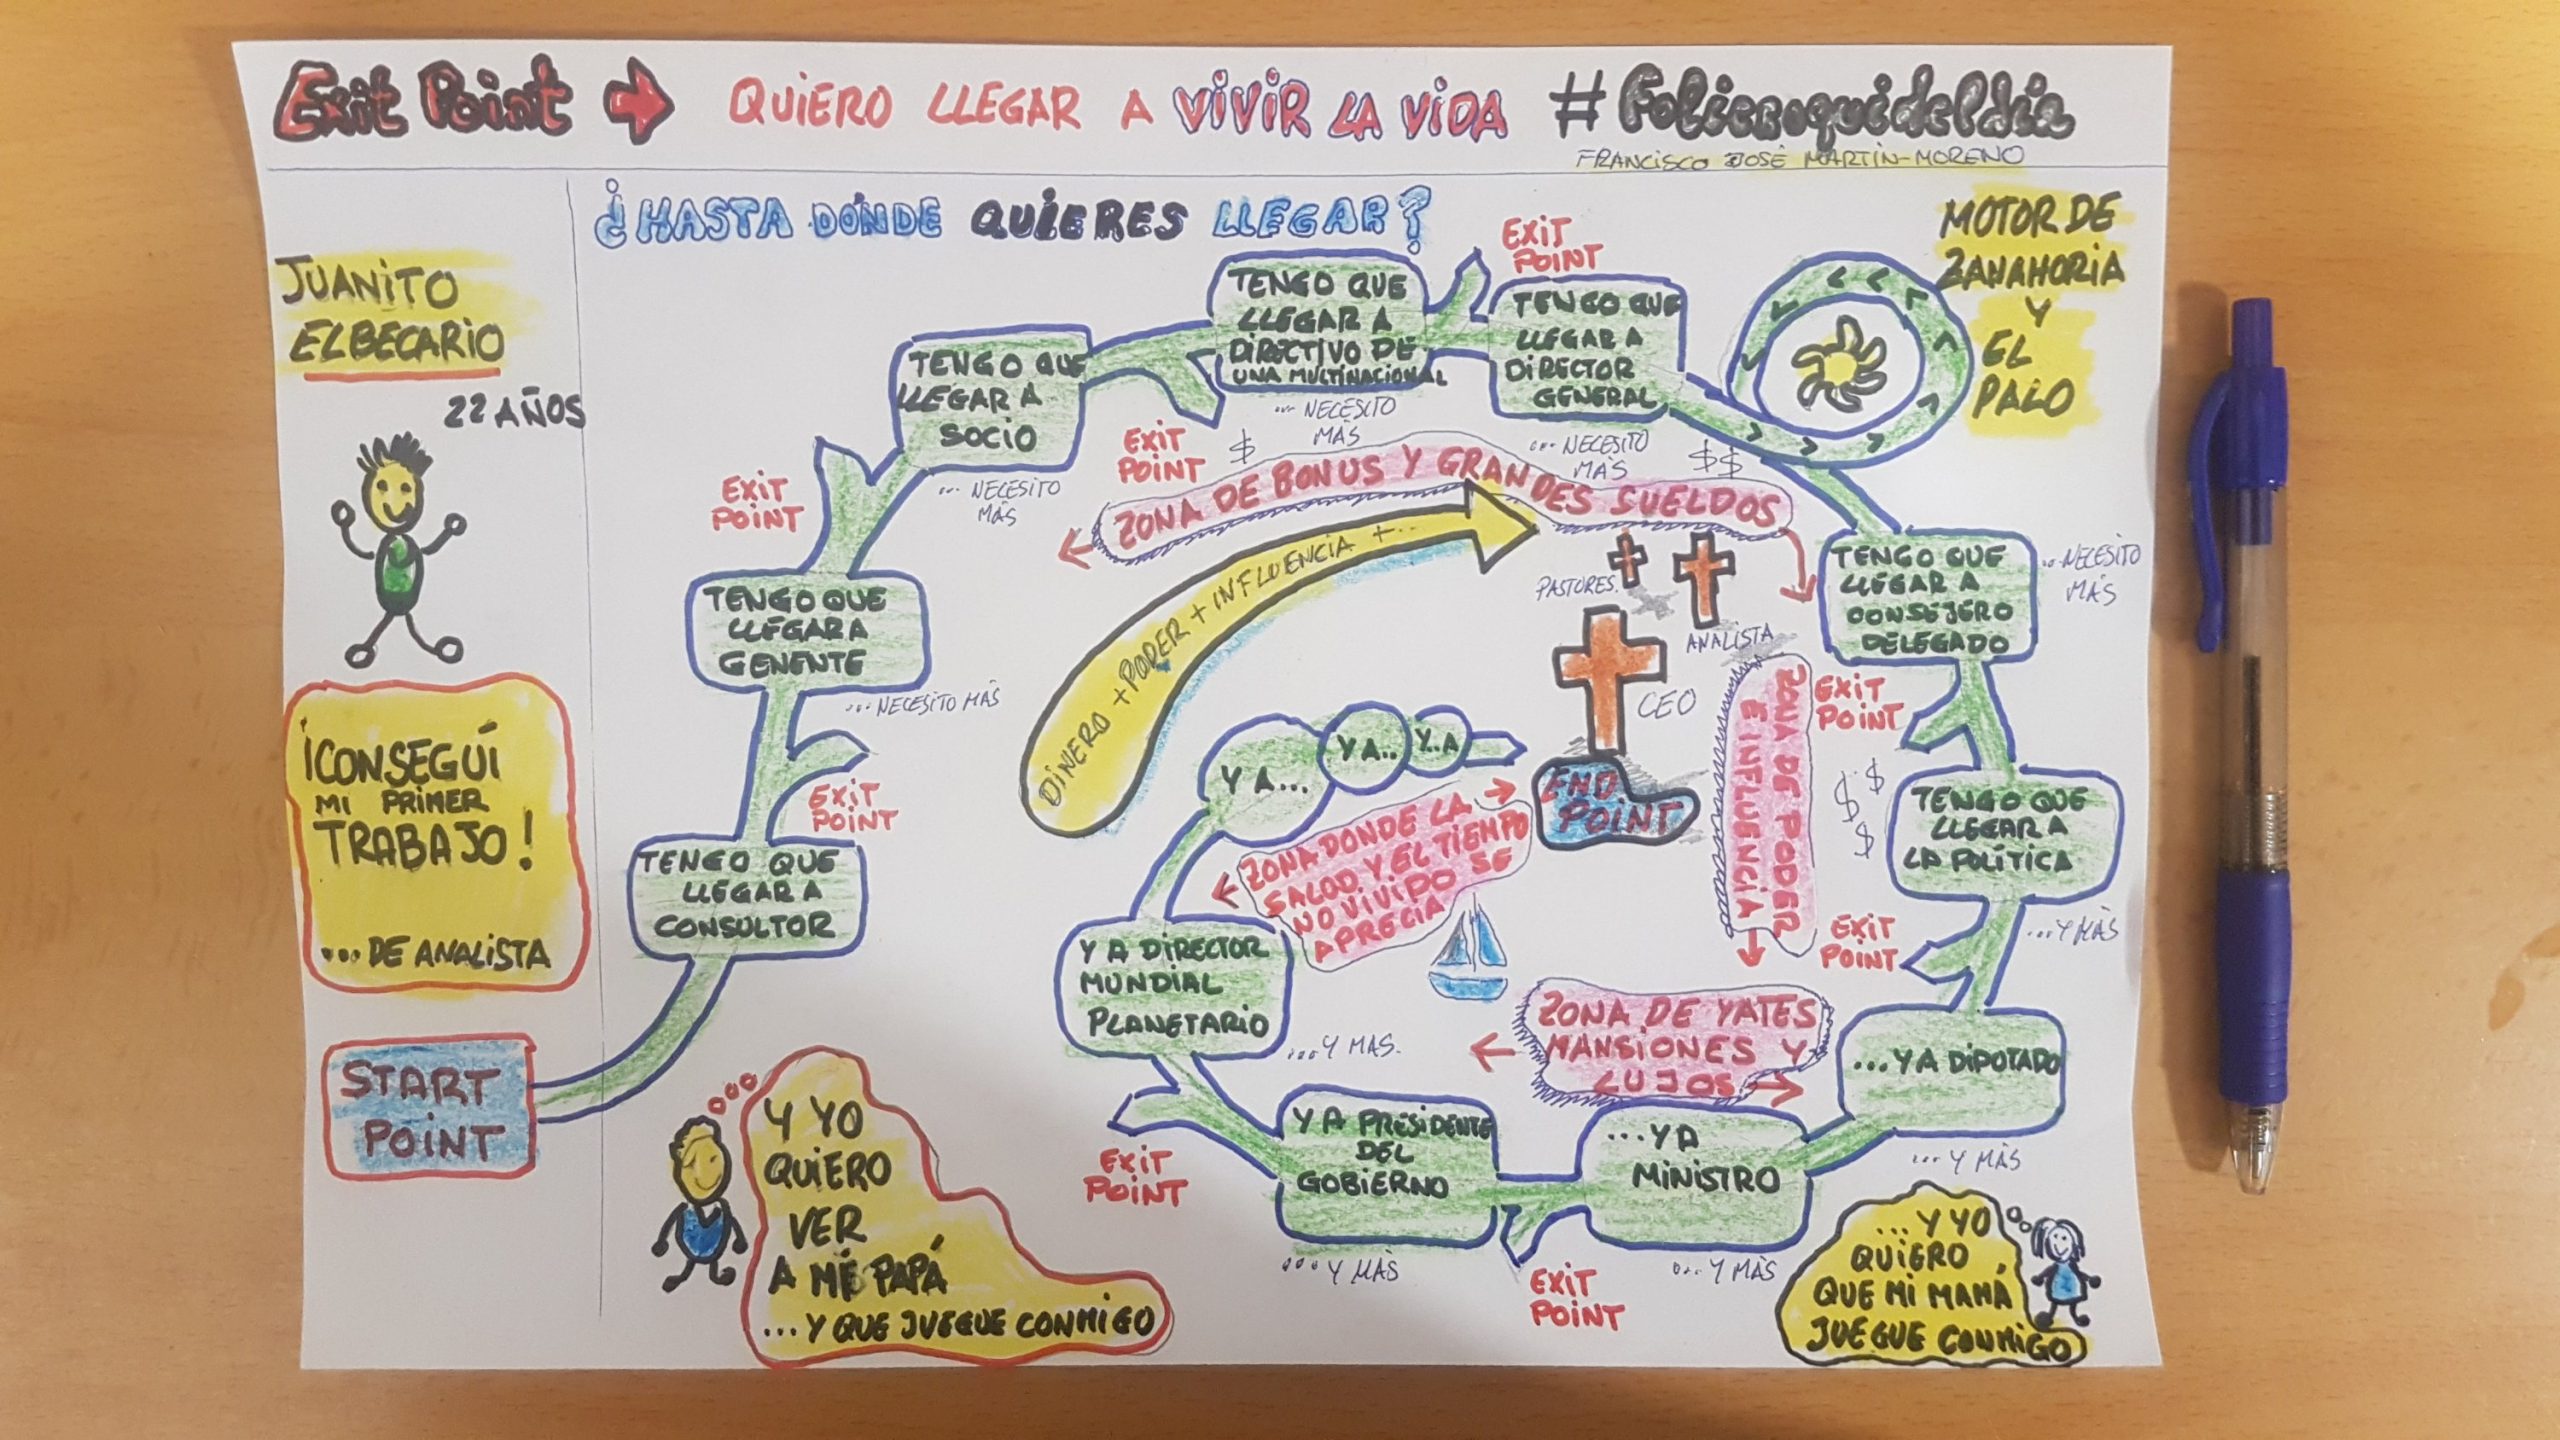 Exit Point
QUIERO LLEGAR A VIVIR LA VIDA
#Folieroquideldia
FRANCISCO JOSÉ MARTÍN-MORENO
¿HASTA DÓNDE QUIERES LLEGAR?
JUANITO
EL BECARIO
22 AÑOS
¡CONSEGUÍ
MI PRIMER
TRABAJO!
...DE ANALISTA
START
POINT
TENGO QUE
LLEGAR A
CONSULTOR
EXIT
POINT
TENGO QUE
LLEGAR A
GENENTE
...NECESITO MÁS
EXIT
POINT
TENGO QUE
LLEGAR A
SOCIO
...NECESITO
MÁS
EXIT
POINT
TENGO QUE
LLEGAR A
DIRECTIVO DE
UNA MULTINACIONAL
...NECESITO
MÁS
EXIT
POINT
TENGO QUE
LLEGAR A
DIRECTOR
GENERAL
...NECESITO
MÁS
MOTOR DE
ZANAHORIA
Y
EL
PALO
$
$$
ZONA DE BONUS Y GRANDES SUELDOS
DINERO + PODER + INFLUENCIA +...
TENGO QUE
LLEGAR A
CONSEJERO
DELEGADO
...NECESITO
MÁS
EXIT
POINT
PASTORES.
ANALISTA
CEO
END
POINT
ZONA DE PODER
E INFLUENCIA
$
$
$
TENGO QUE
LLEGAR A
LA POLÍTICA
...Y MÁS
EXIT
POINT
...Y A DIPUTADO
...Y MÁS
ZONA DE YATES
MANSIONES Y
LUJOS
...Y A
MINISTRO
...Y MÁS
EXIT
POINT
Y A PRESIDENTE
DEL
GOBIERNO
...Y MÁS
EXIT
POINT
Y A DIRECTOR
MUNDIAL
PLANETARIO
...Y MÁS.
ZONA DONDE LA
SALUD Y EL TIEMPO
NO VIVIDO SE
APRECIA
Y A...
Y A..
Y..A
Y YO
QUIERO
VER
A MI PAPÁ
...Y QUE JUEGUE CONMIGO
...Y YO
QUIERO
QUE MI MAMÁ
JUEGUE CONMIGO